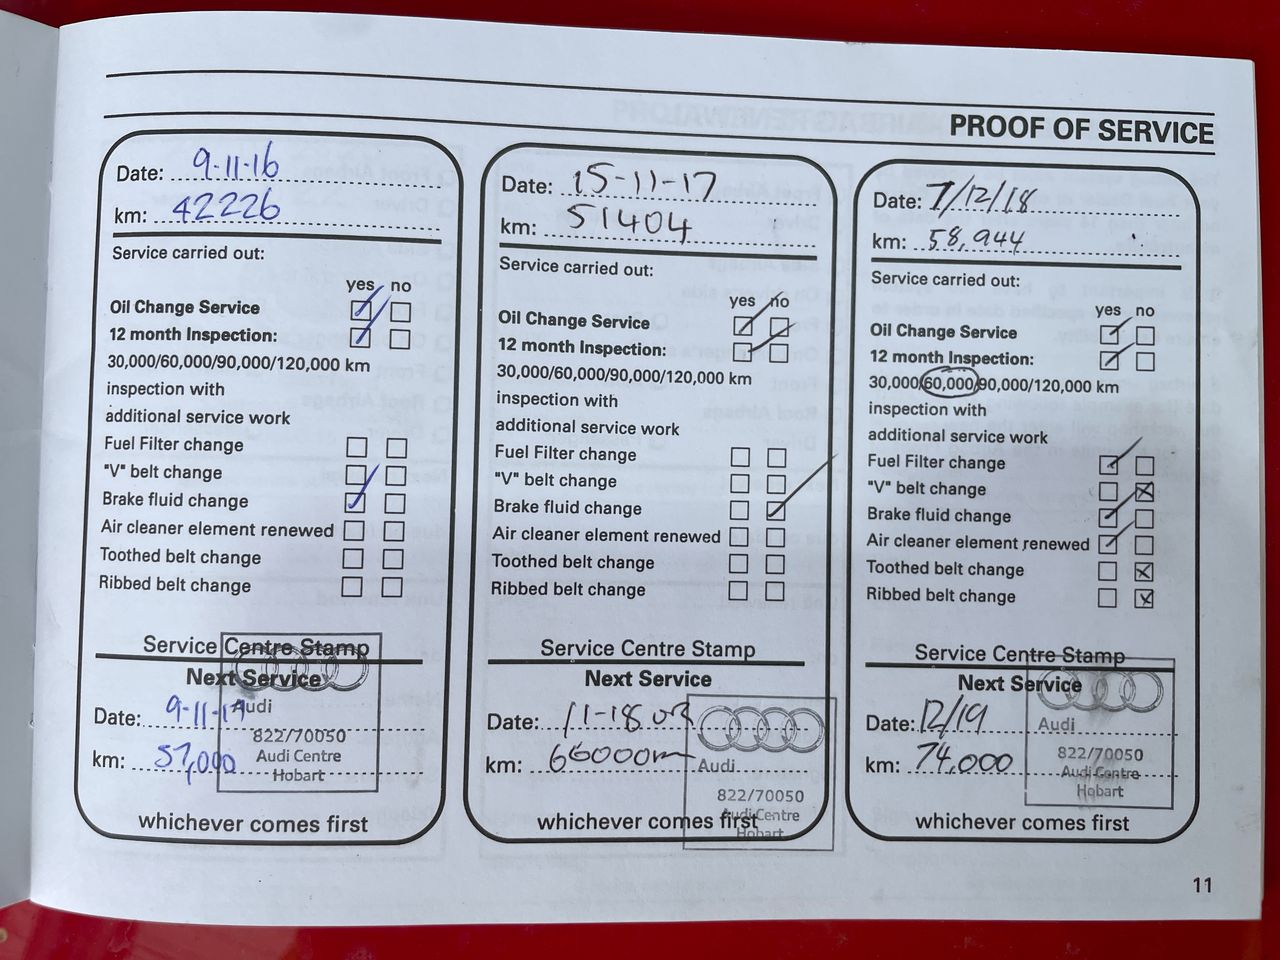 PROOF OF SERVICE
Date: 9-11-16
km: 42226
Service carried out:
yes no
Oil Change Service
12 month Inspection:
30,000/60,000/90,000/120,000 km
inspection with
additional service work
Fuel Filter change
"V" belt change
Brake fluid change
Air cleaner element renewed
Toothed belt change
Ribbed belt change
Service Centre Stamp
Next Service
Date: 9-11-17
km: 57,000
Audi
822/70050
Audi Centre
Hobart
whichever comes first
Date: 15-11-17
km: 51404
Service carried out:
yes no
Oil Change Service
12 month Inspection:
30,000/60,000/90,000/120,000 km
inspection with
additional service work
Fuel Filter change
"V" belt change
Brake fluid change
Air cleaner element renewed
Toothed belt change
Ribbed belt change
Service Centre Stamp
Next Service
Date: 11-18 OR
km: 66000
Audi
822/70050
Audi Centre
Hobart
whichever comes first
Date: 7/12/18
km: 58,944
Service carried out:
yes no
Oil Change Service
12 month Inspection:
30,000/60,000/90,000/120,000 km
inspection with
additional service work
Fuel Filter change
"V" belt change
Brake fluid change
Air cleaner element renewed
Toothed belt change
Ribbed belt change
Service Centre Stamp
Next Service
Date: 12/19
km: 74,000
Audi
822/70050
Audi Centre
Hobart
whichever comes first
11